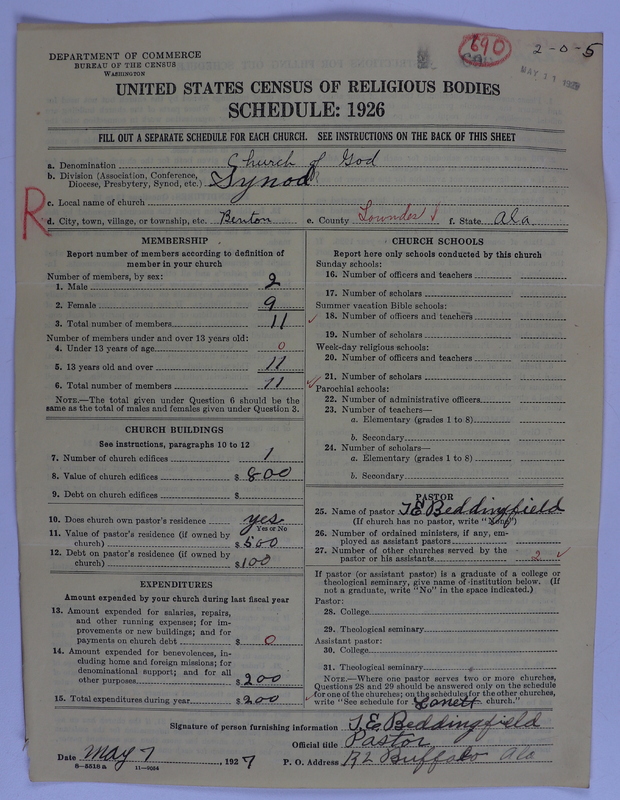 690
2-0-5
MAY 11
DEPARTMENT OF COMMERCE
BUREAU OF THE CENSUS
WASHINGTON
UNITED STATES CENSUS OF RELIGIOUS BODIES
SCHEDULE: 1926
FILL OUT A SEPARATE SCHEDULE FOR EACH CHURCH. SEE INSTRUCTIONS ON THE BACK OF THIS SHEET
a. Denomination Church of God
b. Division (Association, Conference, Diocese, Presbytery, Synod, etc.) Synod
c. Local name of church
R
d. City, town, village, or township, etc. Benton e. County Lowndes f. State Ala
MEMBERSHIP
Report number of members according to definition of
member in your church
Number of members, by sex:
1. Male 2
2. Female 9
3. Total number of members 11
Number of members under and over 13 years old:
4. Under 13 years of age 0
5. 13 years old and over 11
6. Total number of members 11
NOTE.—The total given under Question 6 should be
same as the total of males and females given under Question 3.
CHURCH BUILDINGS
See instructions, paragraphs 10 to 12
7. Number of church edifices 1
8. Value of church edifices $ 800
9. Debt on church edifices $
10. Does church own pastor's residence yes
Yes or No
11. Value of pastor's residence (if owned by
church) $ 500
12. Debt on pastor's residence (if owned by
church) $ 100
EXPENDITURES
Amount expended by your church during last fiscal year
13. Amount expended for salaries, repairs,
and other running expenses; for im-
provements or new buildings; and for
payments on church debt $ 0
14. Amount expended for benevolences, in-
cluding home and foreign missions; for
denominational support; and for all
other purposes $ 200
15. Total expenditures during year $ 200
CHURCH SCHOOLS
Report here only schools conducted by this church
Sunday schools:
16. Number of officers and teachers
17. Number of scholars
Summer vacation Bible schools:
18. Number of officers and teachers
19. Number of scholars
Week-day religious schools:
20. Number of officers and teachers
21. Number of scholars
Parochial schools:
22. Number of administrative officers
23. Number of teachers—
a. Elementary (grades 1 to 8)
b. Secondary
24. Number of scholars—
a. Elementary (grades 1 to 8)
b. Secondary
PASTOR
25. Name of pastor T. E. Beddingfield
(If church has no pastor, write "None")
26. Number of ordained ministers, if any, em-
ployed as assistant pastors
27. Number of other churches served by the
pastor or his assistants 2
If pastor (or assistant pastor) is a graduate of a college or
theological seminary, give name of institution below. (If
not a graduate, write "No" in the space indicated.)
Pastor:
28. College
29. Theological seminary
Assistant pastor:
30. College
31. Theological seminary
NOTE.—Where one pastor serves two or more churches,
Questions 28 and 29 should be answered only on the schedule
for one of the churches; on the schedules for the other churches,
write "See schedule for Lanett church."
Signature of person furnishing information T. E. Beddingfield
Official title Pastor
Date May 7, 1927 P. O. Address R2 Buffalo Ala
8—5516 a 11—9034